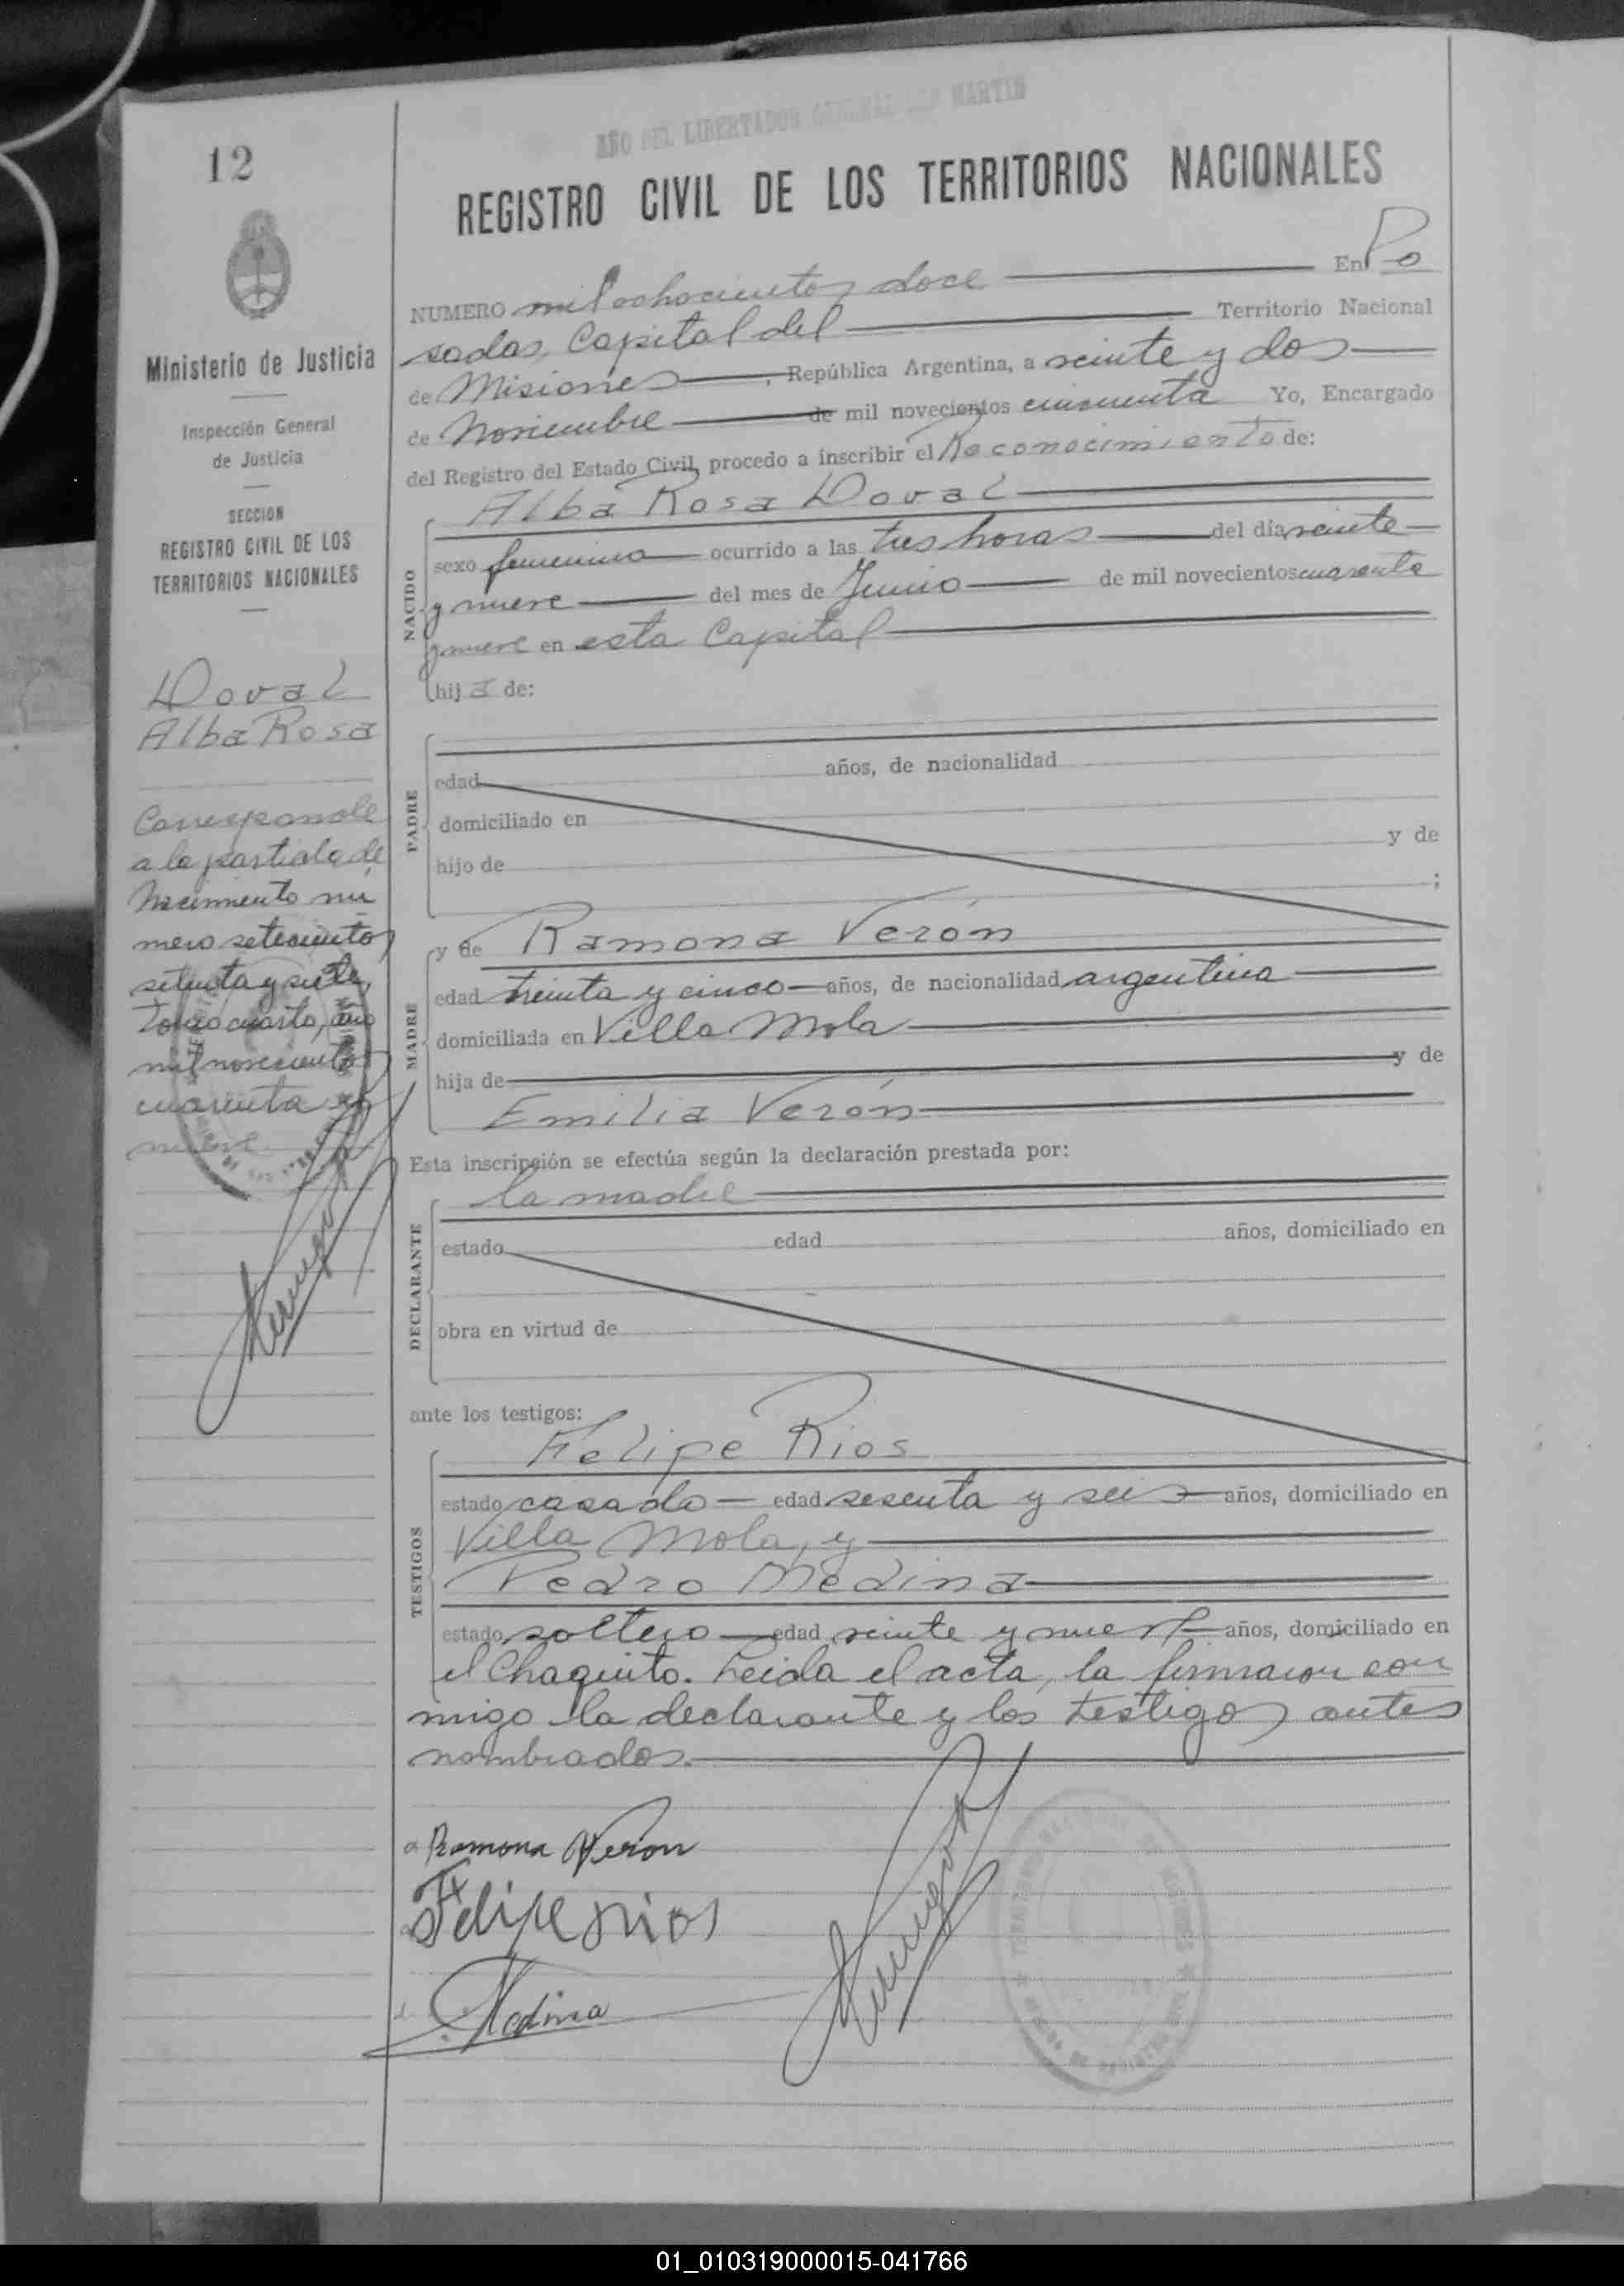 AÑO DEL LIBERTADOR GENERAL SAN MARTIN
12
REGISTRO CIVIL DE LOS TERRITORIOS NACIONALES
Ministerio de Justicia
Inspección General
de Justicia
SECCION
REGISTRO CIVIL DE LOS
TERRITORIOS NACIONALES
Doval
Alba Rosa
Corresponde
a la partida de
Nacimiento nu
mero setecientos
setenta y siete,
Tomo cuarto, año
mil novecientos
cuarenta y
nueve
NUMERO mil ochocientos doce En Po
sadas, Capital del Territorio Nacional
de Misiones, República Argentina, a veinte y dos
de Noviembre de mil novecientos cincuenta Yo, Encargado
del Registro del Estado Civil, procedo a inscribir el Reconocimiento de:
Alba Rosa Doval
NACIDO
sexo femenino ocurrido a las tres horas del día veinte
y nueve del mes de Junio de mil novecientos cuarenta
y nueve en esta Capital
hija de:
PADRE
edad años, de nacionalidad
domiciliado en
hijo de y de
;
MADRE
y de Ramona Verón
edad treinta y cinco años, de nacionalidad argentina
domiciliada en Villa Mola
hija de y de
Emilia Verón
Esta inscripción se efectúa según la declaración prestada por:
la madre
DECLARANTE
estado edad años, domiciliado en
obra en virtud de
ante los testigos:
Felipe Rios
TESTIGOS
estado casado edad sesenta y seis años, domiciliado en
Villa Mola, y
Pedro Medina
estado soltero edad veinte y nueve años, domiciliado en
el Chaquito. Leida el acta, la firmaron con
migo la declarante y los testigos antes
nombrados.
Ramona Veron
Felipe rios
Medina
01_010319000015-041766